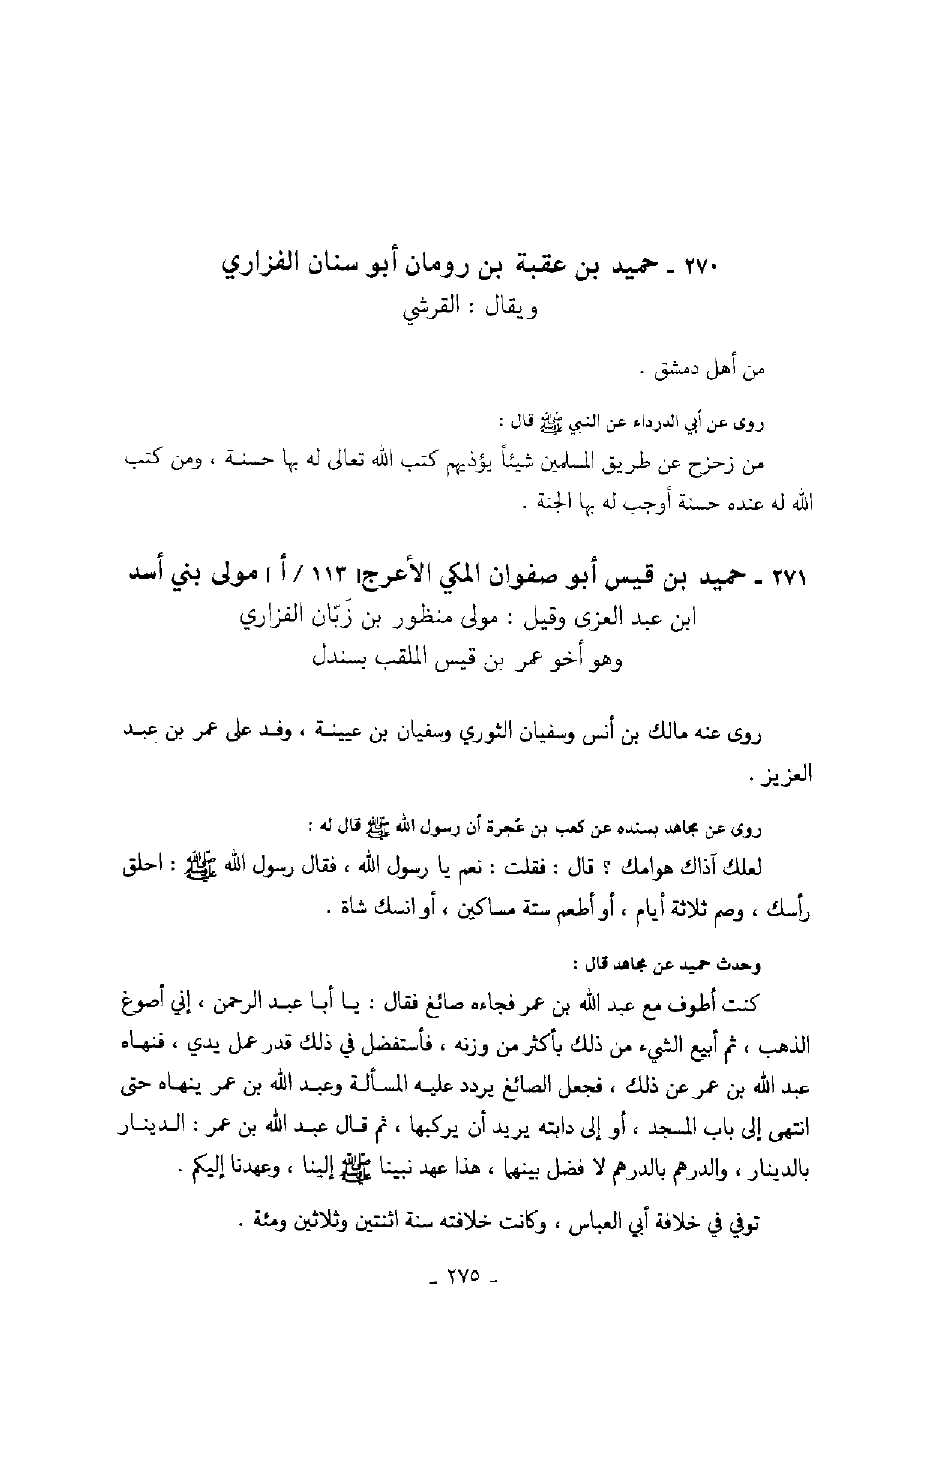 ٢٧٠ ـ حميد بن عقبة بن رومان أبو سنان الفزاري
ويقال : القرشي
من أهل دمشق .
روى عن أبي الدرداء عن النبي ﷺ قال :
من زحزح عن طريق المسلمين شيئاً يؤذيهم كتب الله تعالى له بها حسنة ، ومن كتب
الله له عنده حسنة أوجب له بها الجنة .
٢٧١ ـ حميد بن قيس أبو صفوان المكي الأعرج[ ١١٣ / أ ] مولى بني أسد
ابن عبد العزى وقيل : مولى منظور بن زَبّان الفزاري
وهو أخو عمر بن قيس الملقب بسندل
روى عنه مالك بن أنس وسفيان الثوري وسفيان بن عيينة ، وفد على عمر بن عبد
العزيز .
روى عن مجاهد بسنده عن كعب بن عُجرة أن رسول الله ﷺ قال له :
لعلك آذاك هوامك ؟ قال : فقلت : نعم يا رسول الله ، فقال رسول الله ﷺ : احلق
رأسك ، وصم ثلاثة أيام ، أو أطعم ستة مساكين ، أو انسك شاة .
وحدث حميد عن مجاهد قال :
كنت أطوف مع عبد الله بن عمر فجاءه صائغ فقال : يا أبا عبد الرحمن ، إني أصوغ
الذهب ، ثم أبيع الشيء من ذلك بأكثر من وزنه ، فأستفضل في ذلك قدر عمل يدي ، فنهاه
عبد الله بن عمر عن ذلك ، فجعل الصائغ يردد عليه المسألة وعبد الله بن عمر ينهاه حتى
انتهى إلى باب المسجد ، أو إلى دابته يريد أن يركبها ، ثم قال عبد الله بن عمر : الدينار
بالدينار ، والدرهم بالدرهم لا فضل بينها ، هذا عهد نبينا ﷺ إلينا ، وعهدنا إليكم .
توفي في خلافة أبي العباس ، وكانت خلافته سنة اثنتين وثلاثين ومئة .
ـ ٢٧٥ ـ